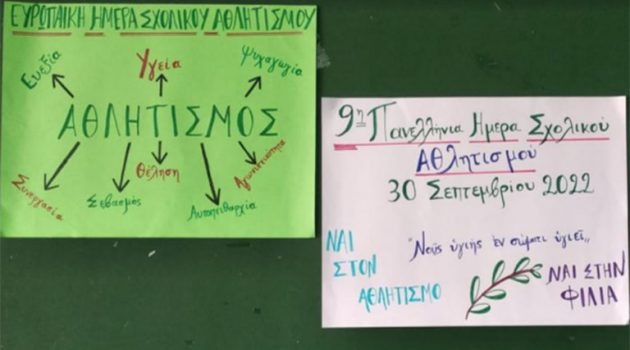 ΕΥΡΩΠΑΪΚΗ ΗΜΕΡΑ ΣΧΟΛΙΚΟΥ ΑΘΛΗΤΙΣΜΟΥ
Ευεξία
Υγεία
Ψυχαγωγία
ΑΘΛΗΤΙΣΜΟΣ
Συνεργασία
Σεβασμός
Θέληση
Αυτοπειθαρχία
Αγωνιστικότητα
9η Πανελλήνια Ημέρα Σχολικού
Αθλητισμού
30 Σεπτεμβρίου 2022
"Νοῦς ὑγιής ἐν σώματι ὑγιεῖ,,
ΝΑΙ
ΣΤΟΝ
ΑΘΛΗΤΙΣΜΟ
ΝΑΙ ΣΤΗΝ
ΦΙΛΙΑ